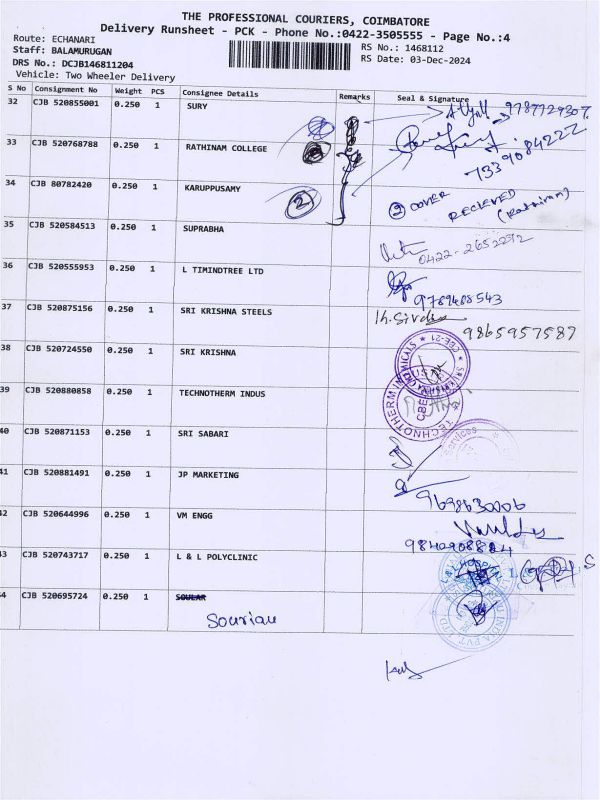 THE PROFESSIONAL COURIERS, COIMBATORE
Delivery Runsheet - PCK - Phone No.:0422-3505555 - Page No.:4
Route: ECHANARI
Staff: BALAMURUGAN
RS No.: 1468112
DRS No.: DCJB146811204
RS Date: 03-Dec-2024
Vehicle: Two Wheeler Delivery
S No Consignment No Weight PCS Consignee Details Remarks Seal & Signature
32 CJB 520855001 0.250 1 SURY 9787729307
33 CJB 520768788 0.250 1 RATHINAM COLLEGE 7339084222
34 CJB 80782420 0.250 1 KARUPPUSAMY 2 2 COVER RECIEVED
35 CJB 520584513 0.250 1 SUPRABHA 0422-2652272
36 CJB 520555953 1 L TIMINDTREE LTD 9789488543
0.250
37 CJB 520875156 0.250 1 SRI KRISHNA STEELS 9865957587
38 CJB 520724550 0.250 1 SRI KRISHNA
39 CJB 520880858 0.250 1 TECHNOTHERM INDUS TECHNOTHERM
40 CJB 520871153 0.250 1 SRI SABARI Services
41 CJB 520881491 0.250 1 JP MARKETING
42 CJB 520644996 0.250 1 VM ENGG 9842908884
43 CJB 520743717 0.250 1 L & L POLYCLINIC
CJB 520695724 0.250 1 SOULAR
Souriau